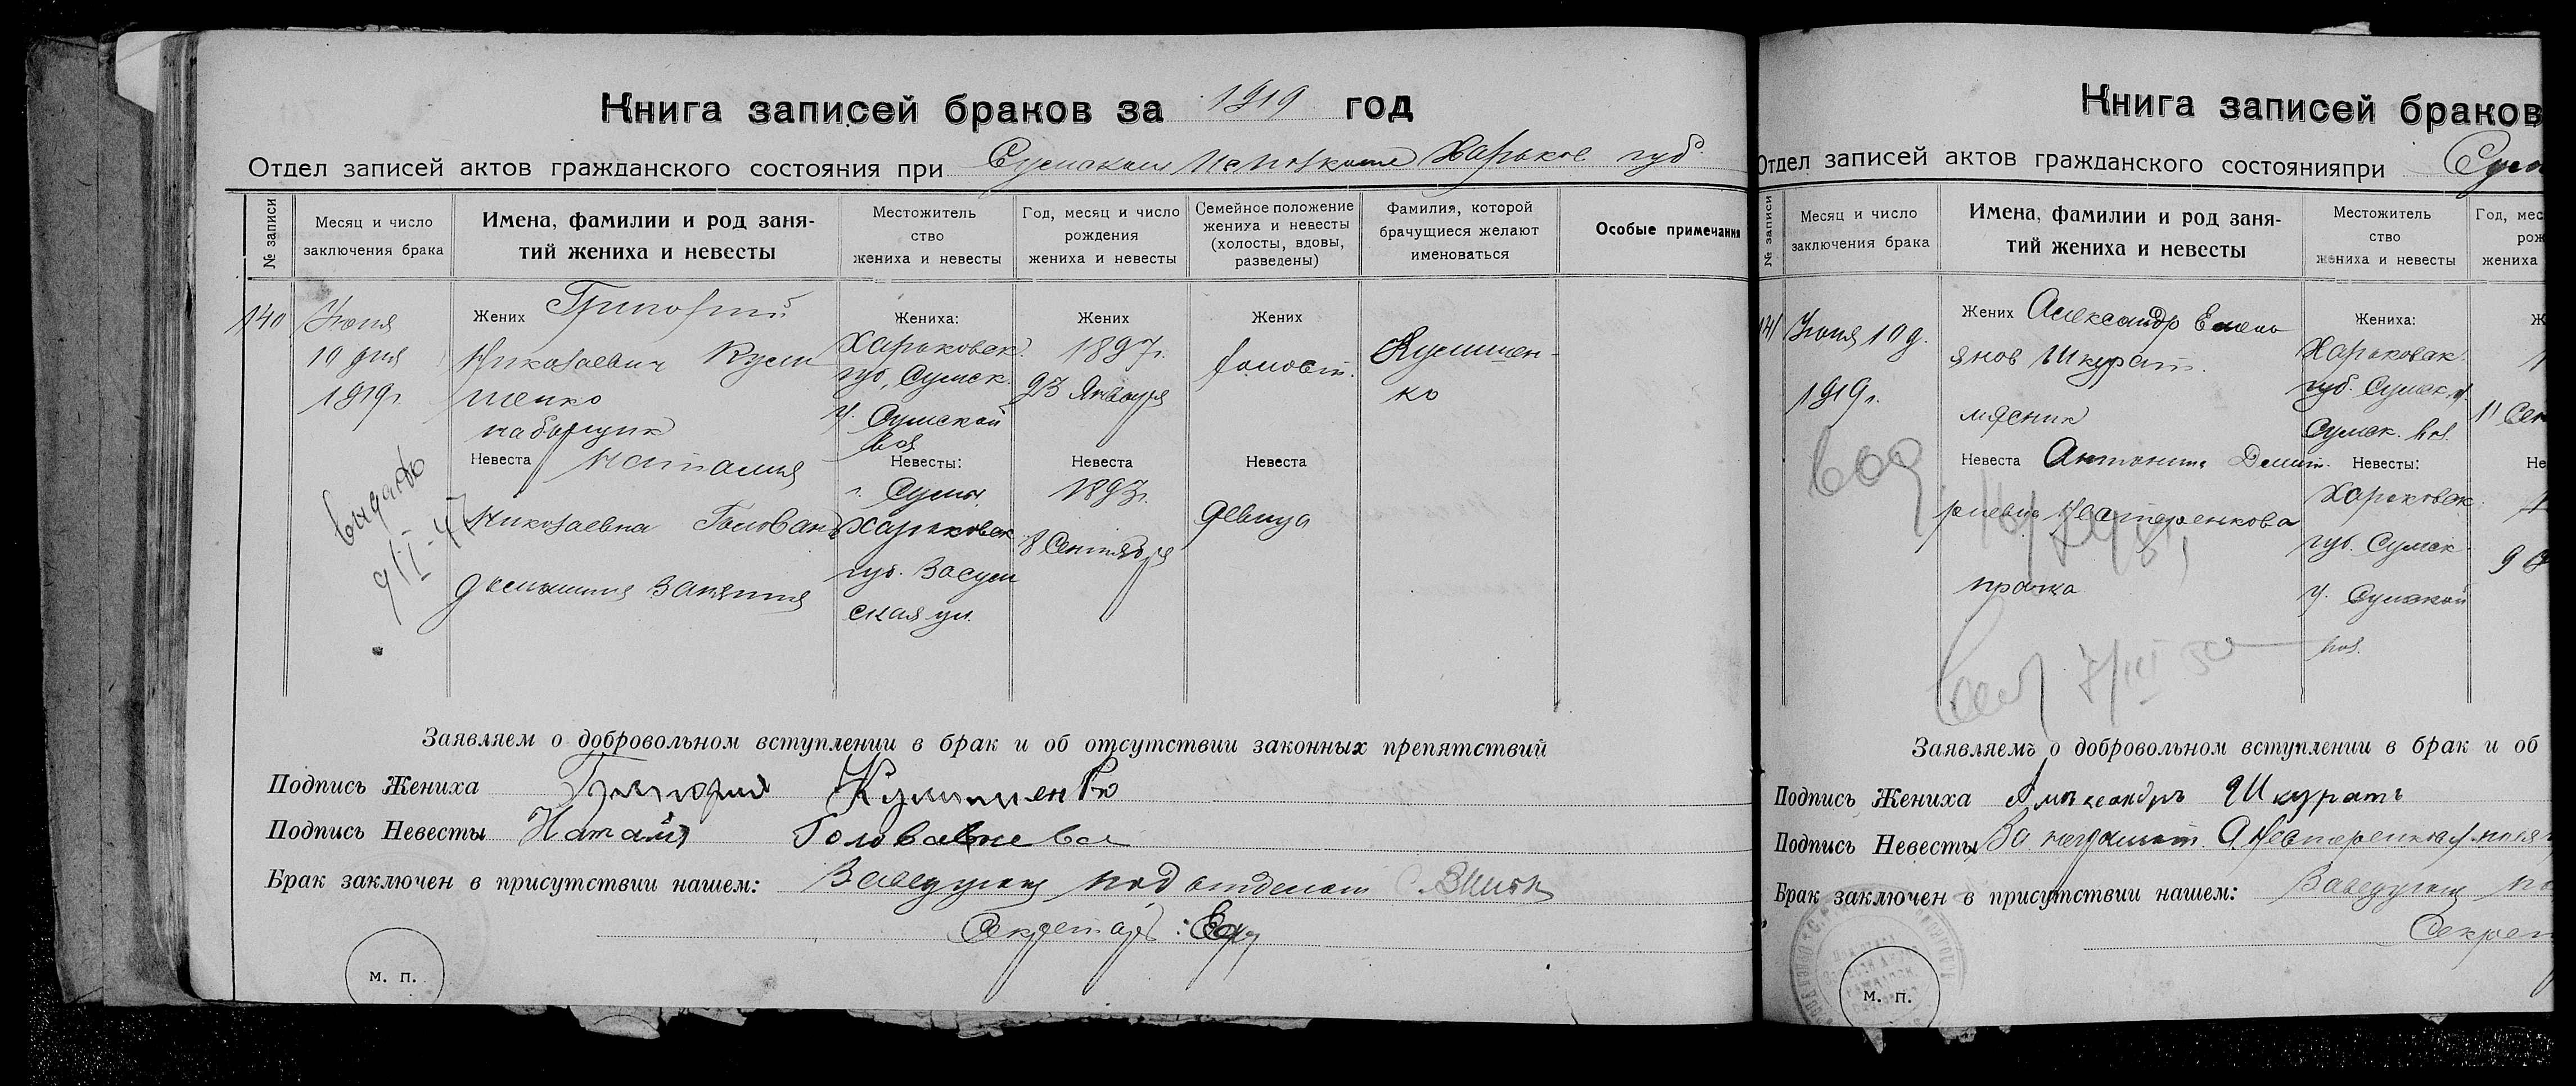 Книга записей браков за 1919 год
Отдел записей актов гражданского состояния при Сумском Исполкоме Харьков губ.
№ записи
Месяц и число
заключения брака
Имена, фамилии и род заня-
тий жениха и невесты
Местожитель
ство
жениха и невесты
Год, месяц и число
рождения
жениха и невесты
Семейное положение
жениха и невесты
(холосты, вдовы,
разведены)
Фамилия, которой
брачущиеся желают
именоваться
Особые примечания
140
Июня
10 дня
1919 г.
Жених Григорий
Николаевич Куш
шенко
наборщик
Невеста Наталия
Николаевна Голован
домашния занятия
Жениха:
Харьковск.
губ, Сумск.
у. Сумской
вол
Невесты:
г. Сумы
Харьковск
губ. Засум
ская ул.
Жених
1897 г.
23 Января
Невеста
1893 г.
8 Сентября
Жених
холост.
Невеста
девица
ко
выдано
9/II-47
Заявляем о добровольном вступлении в брак и об отсутствии законных препятствий
Подпись Жениха Григорий
Подпись Невесты Наталия
Брак заключен в присутствии нашем: Заведующ подотделом
Секретарь:
м. п.
Книга записей браков
Отдел записей актов гражданского состоянияпри Сум
№ записи
Месяц и число
заключения брака
Имена, фамилии и род заня-
тий жениха и невесты
Местожитель
ство
жениха и невесты
Год, мес
рож
жениха
141
Июня 10 д.
1919 г.
Жених Александр Емель
янов Шкурат.
мясник
Невеста Антонина Димит.
риевна Нестеренкова
прачка
Жениха:
Харьковск.
губ. Сумск. у.
Сумск. вол.
Невесты:
Харьковск.
губ. Сумск.
у. Сумской
вол.
Ж
1
11 Сен
Не
1
9
7/III 50
Заявляемъ о добровольном вступлении в брак и об
Подпись Жениха Александръ Шкуратъ
Подпись Невесты За неграмот.
Брак заключен в присутствии нашем: Заведующ по
Секрет
м. п.